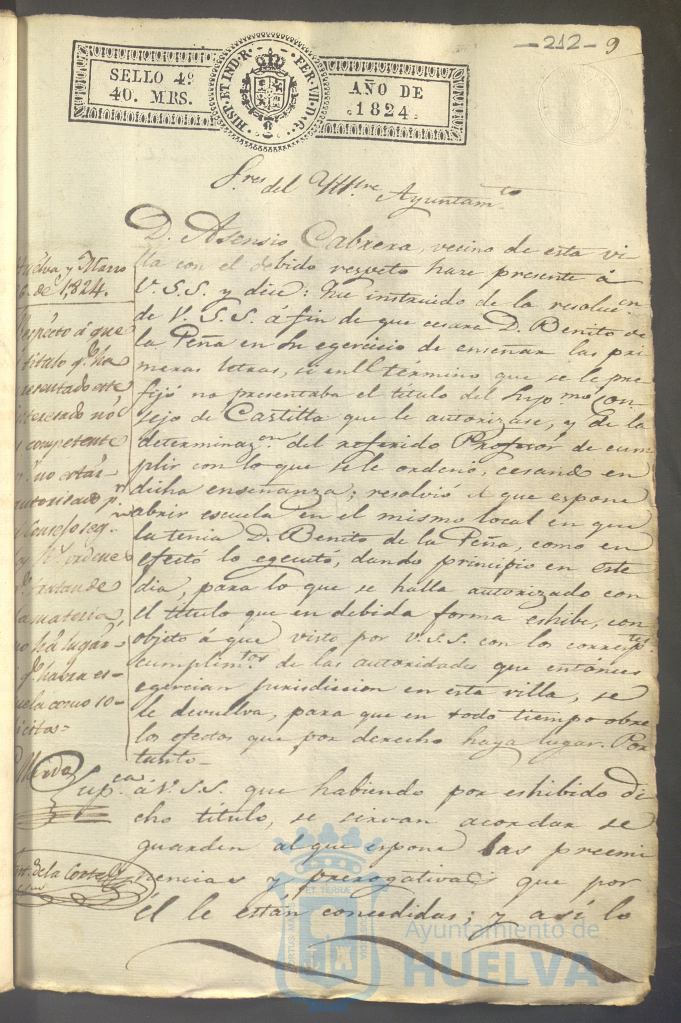 -212- 9
SELLO 4º
40. MRS.
HISP. ET IND. R.
FER. VII. D. G.
AÑO DE
1824.
S.res del Yll.tre Ayuntam.to
D. Asensio Cabrera, vecino de esta vi
lla con el debido respeto hace presente á
V. S. S. y dice: Que instruido de la resoluc.on
de V. S. S. á fin de que cesare D. Benito de
la Peña en su egercicio de enseñar las pri
meras letras, si en el término que se le pre
fijó no presentaba el título del Sup.mo Con
sejo de Castilla que le autorizase, y de la
determinaz.on del referido Profesor de cum
plir con lo que se le ordenó, cesando en
dicha enseñanza; resolvió el que espone
abrir escuela en el mismo local en que
la tenia D. Benito de la Peña, como en
efectó lo egecutó, dando principio en este
dia, para lo que se halla autorizado con
el título que en debida forma exhibe, con
objeto á que visto por V. S. S. con los corresp.tes
cumplim.tos de las autoridades que entónces
egercian jurisdiccion en esta villa, se
le devuelva, para que en todo tiempo obre
los efectos que por derecho haya lugar. Por
tanto-
Sup.ca á V. S. S. que habiendo por exhibido di
cho título, se sirvan acordar se
guarden al que espone las preemi
nencias y prerogativas que por
él le están concedidas; y así lo
Huelva y Marzo
de 1,824.
Respecto á que
título q.e ha
presentado este
interesado nó
competente
no estár
autorizado p.r
Consejo seg.n
ordenes
tratan de
la materia,
no há lugar
q.e habra es-
uela como so-
licita-
de la Corte
Ayuntamiento de
HUELVA